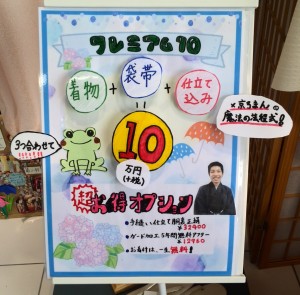 プレミアム10
着物 + 袋帯 + 仕立て込み
京ちまんの
魔法の法程式!
3つ合わせて
10
万円
(+税)
超お得オプション
・手縫い仕立て 胴裏正絹
¥32400
・ガード加工 5年間無料アフター
¥12960
・お着付は、一生無料!